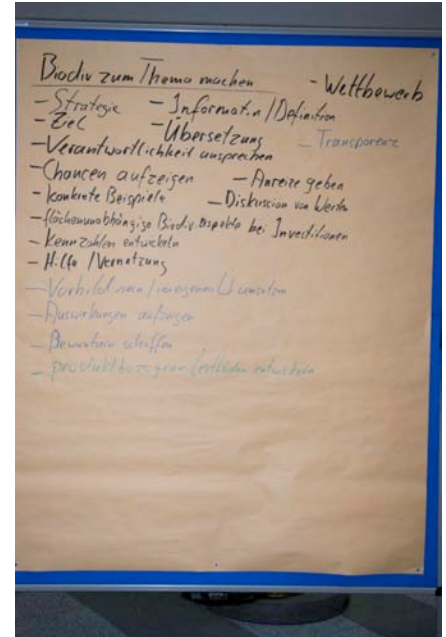 Biodiv zum Thema machen - Wettbewerb
- Strategie - Information/Definition
- Ziel - Übersetzung - Transparenz
- Verantwortlichkeit ansprechen
- Chancen aufzeigen - Anreize geben
- konkrete Beispiele - Diskussion von Werten
- flächenunabhängige Biodiv. Aspekte bei Investitionen
- Kennzahlen entwickeln
- Hilfe / Vernetzung
- Vorbild sein / im eigenen U umsetzen
- Auswirkungen aufzeigen
- Bewusstsein schaffen
- produktbezogene entwickeln